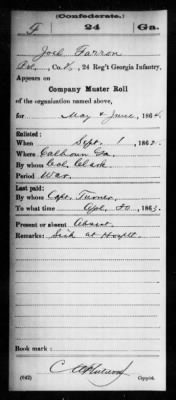 (Confederate.)
F 24 Ga.
Joel Farron
Pvt, Co. , 24 Reg't Georgia Infantry,
Appears on
Company Muster Roll
of the organization named above,
for May & June, 1864.
Enlisted:
When Sept. 1, 1862.
Where Calhoun Ga.
By whom Col. Clark
Period War.
Last paid:
By whom Capt. Turner
To what time Apl. 30, 1863.
Present or absent Absent
Remarks: Sick at Hospitl
Book mark:
(642)
Copyist.